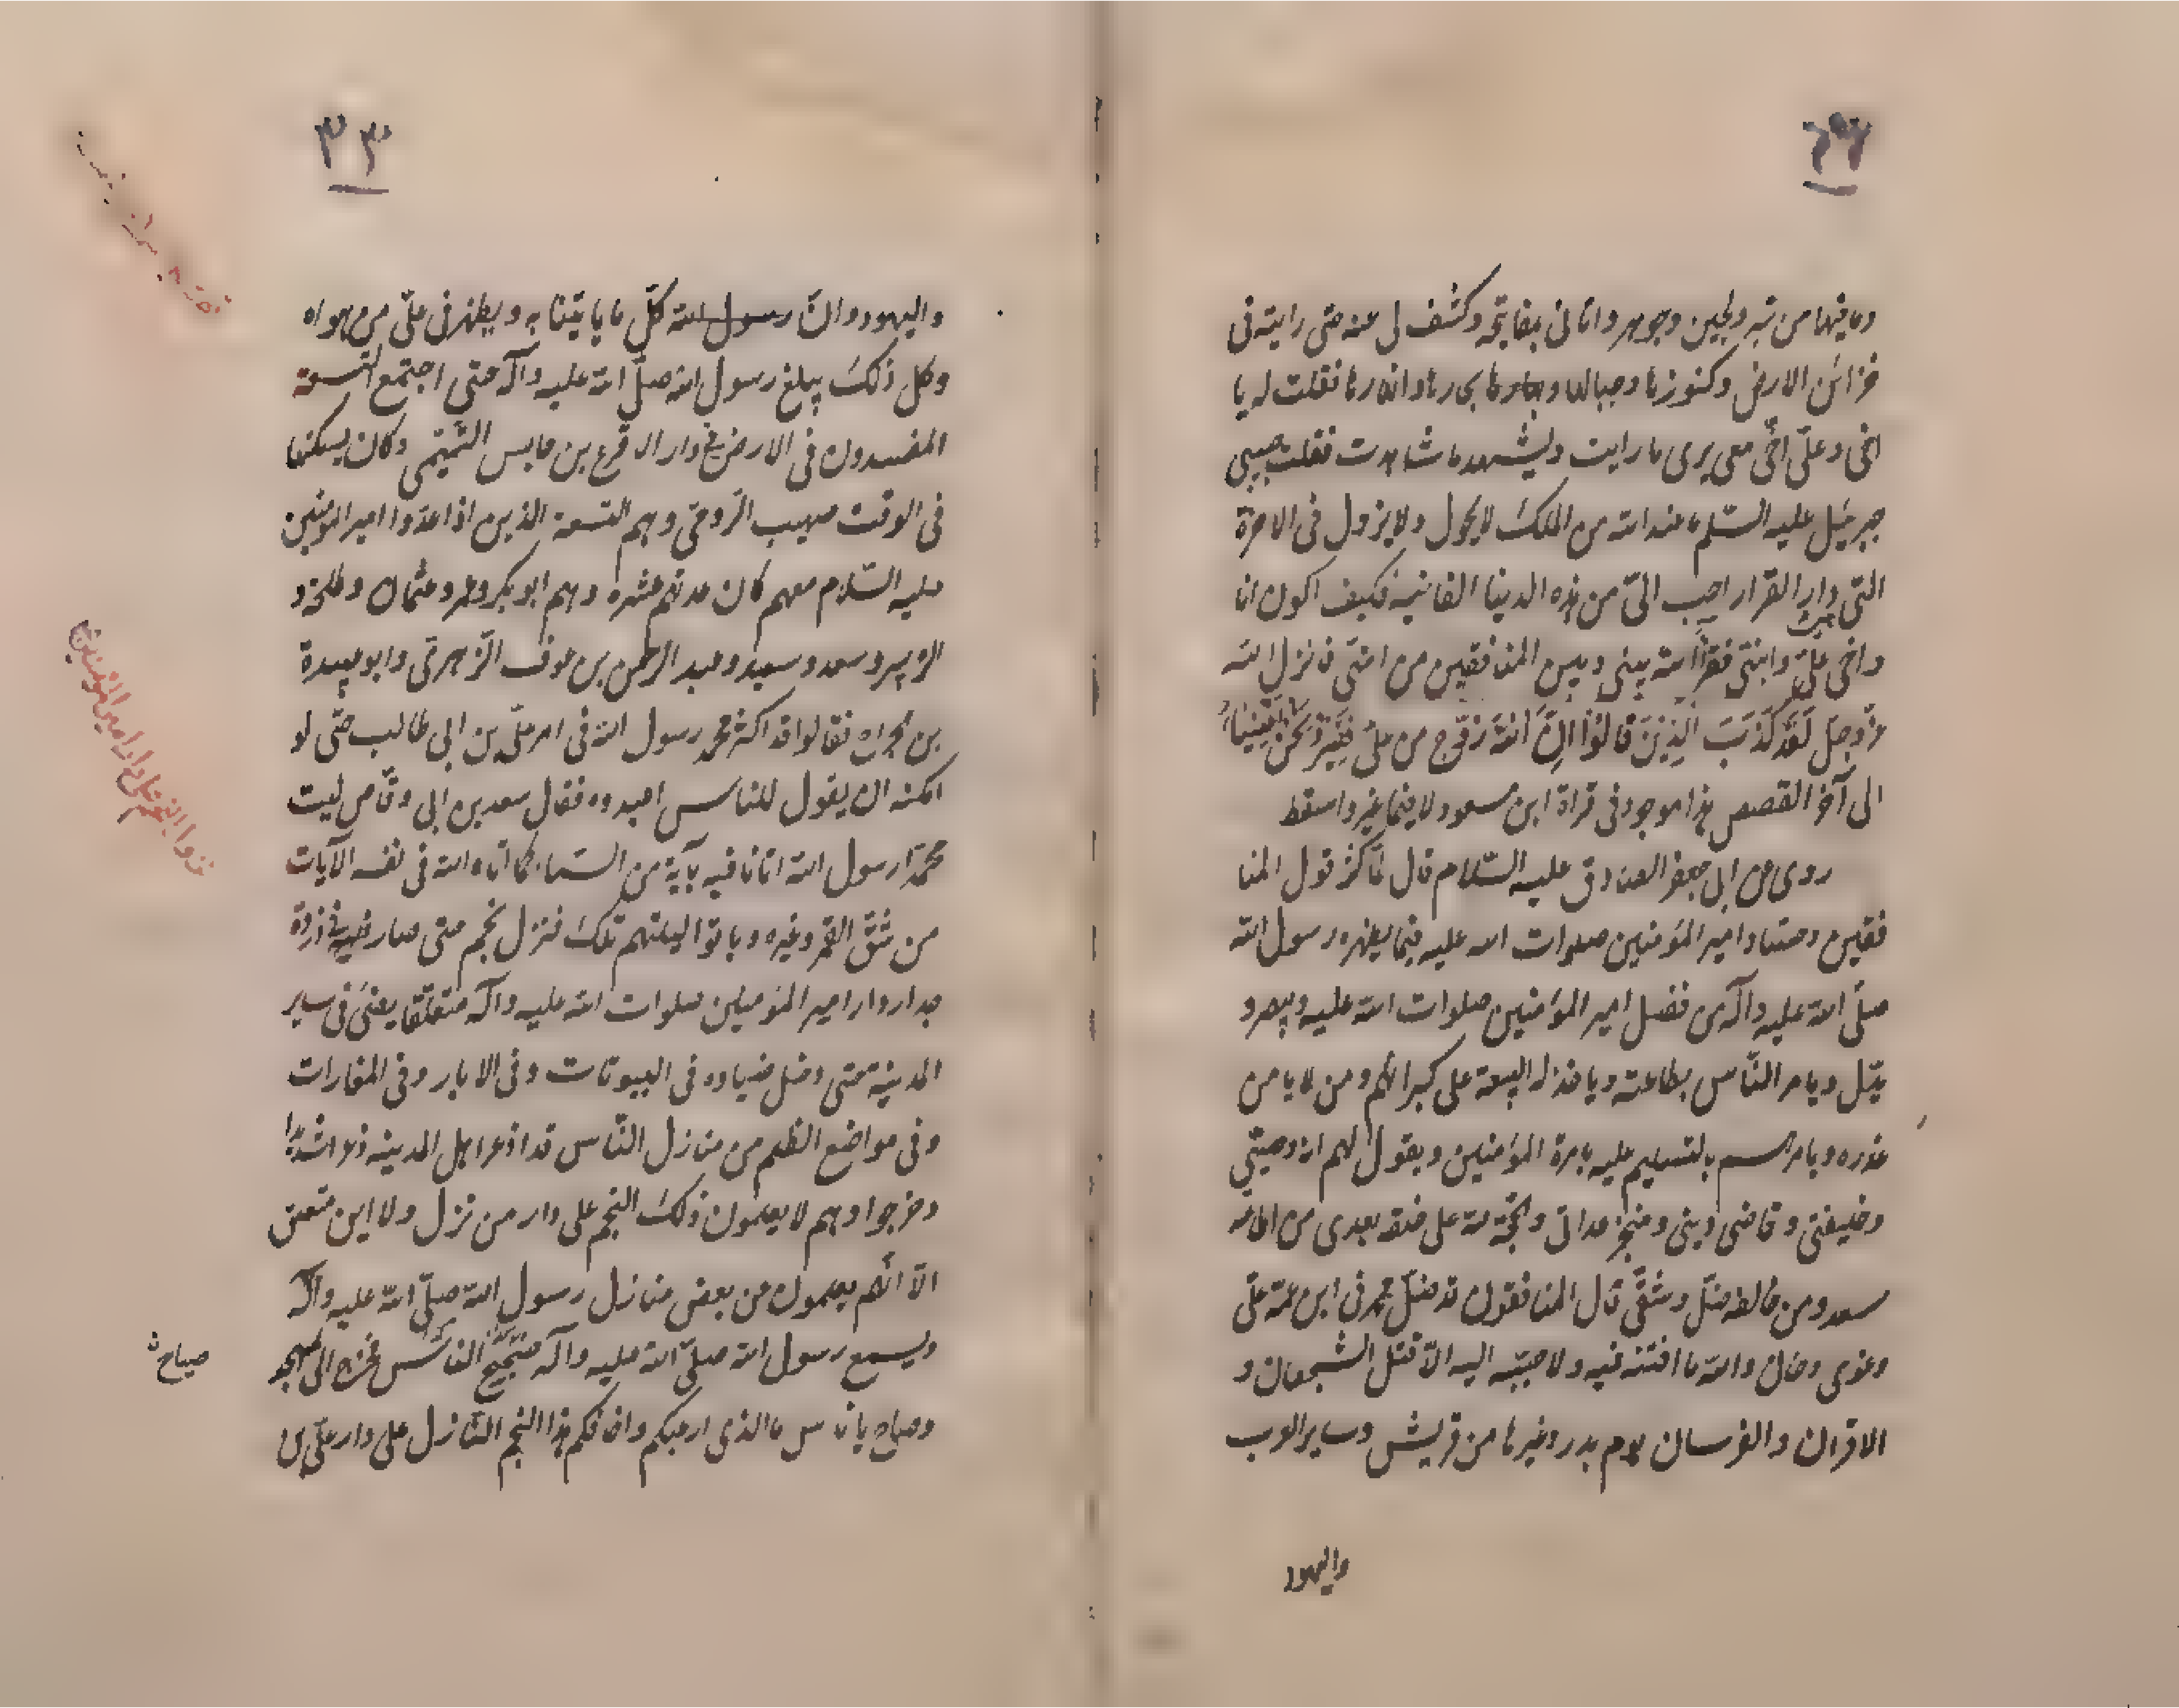 وما فيها من تبر ولجين وجوهر واتانى بمفاتيحه وكشف لى عنه حتى رايته فى
خزائن الارض وكنوزها وجبالها وبحارها وانهارها فقلت له يا
اخى وعلىّ اخى معى يرى ما رايت ويشهد ما شاهدت فقلت حبيبى
جبرئيل عليه السّلم ما عند الله من الملك لا يحول ولا يزول فى الاخرة
التى دار القرار احب الىّ من هذه الدنيا الفانية فكيف اكون انا
واخى علىّ وابنتى فقراً الله بينى وبين المنافقين من امتى فانزل الله
عزّ وجل لَقَد كَذَبَ الَّذِيْنَ قَالُوْا اِنَّ اللهَ زوّج من علىّ فَقِيرٌ وَنَحْنُ اَغْنِيَاءُ
الى آخر القصص هذا موجود فى قراة ابن مسعود لا فيما غير واسقط
روى عن ابى جعفر الصادق عليه السّلام قال لمّا كثر قول المنا
فقين وحسّاد امير المؤمنين صلوات الله عليه فيما يظهره رسول الله
صلّى الله عليه وآله من فضل امير المؤمنين صلوات الله عليه ويبصر و
يدّل ويامر النّاس بطاعته وياخذ له البيعة على كبرائهم ومن لا يامن
غدره ويامرهم بالتسليم عليه بامرة المؤمنين ويقول لهم انه وصيّى
وخليفتى وقاضى دينى ومنجز عداتى وحجّة لله على خلقه بعدى من اطاعه
سعد ومن خالفه ضلّ وشقى قال المنافقون قد ضلّ محمد فى ابن عمّه علىّ
وغوى وضل والله ما افتنه فيه ولا حبّبه اليه الّا قتل الشجعان و
الاقران والفرسان يوم بدر وغيرها من قريش وساير العرب
واليهود
٣٣
واليهود وانّ رسول الله كلّ ما ياتينا به ويظهر فى علىّ من هواه
وكل ذلك يبلغ رسول الله صلّى الله عليه وآله حتى اجتمع التسعة
المفسدون فى الارض فى دار الاقرع بن حابس التّميمى وكان يسكنها
فى الوقت صهيب الرّومىّ وهم التسعة الذين اذا عدّوا امير المؤمنين
عليه السّلام معهم كان عدتهم عشرة وهم ابو بكر وعمر وعثمان وطلحة و
الزبير وسعد وسعيد وعبد الرحمن بن عوف الزّهرىّ وابو عبيدة
بن الجراح فقالوا قد اكثر محمد رسول الله فى امر علىّ بن ابى طالب حتّى لو
امكنه ان يقول للناس اعبدوه فقال سعد بن ابى وقّاص ليت
محمّداً رسول الله اتانا فيه بآية من السّماء كما اتاه الله فى نفسه الآيات
من شقّ القمر وغيره وباتوا ليلتهم تلك فنزل نجم حتى صار فى ذروة
جدار دار امير المؤمنين صلوات الله عليه وآله متعلّقا يضئ فى ساير
المدينة حتى دخل ضياوه فى البيوتات وفى الابار وفى المغارات
وفى مواضع الظلم من منازل النّاس قد اذعر اهل المدينة ذعرا شديدا
وخرجوا وهم لا يعلمون ذلك النجم على دار من نزل ولا اين متعلق
الّا انّهم يعلمون من بعض منازل رسول الله صلّى الله عليه وآله
ويسمع رسول الله صلّى الله عليه وآله النّاس فخرج الى المسجد
صياح
وصاح يا ناس ما الذى ارعبكم واخافكم هذا النجم النّازل على دار علىّ بن